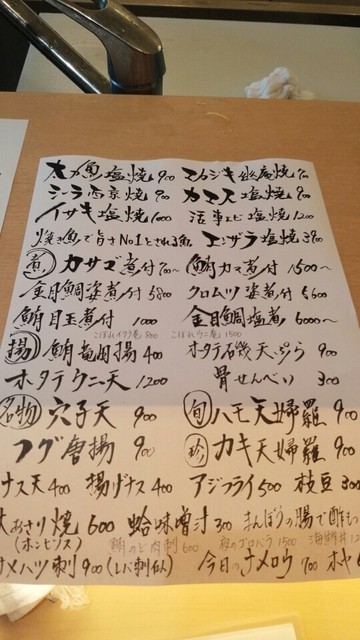 太刀魚塩焼 900 マカジキ幽庵焼 900
シイラ西京焼 900 カマス塩焼 900
イサキ塩焼 1000 活車エビ塩焼 1200
焼き魚で旨さNo1とされる魚。 エンザラ塩焼 3900
煮 カサゴ煮付 700〜 鮪カマ煮付 1500〜
金目鯛姿煮付 5800 クロムツ姿煮付 5600
鮪目玉煮付 1000 金目鯛塩煮 6000〜
こぼれイクラ庵 800 こぼれウニ庵 1500
揚 鮪竜田揚 400 ホタテ石磯天ぷら 900
ホタテウニ天 1200 骨せんべい 300
名物 穴子天 900 旬 ハモ天婦羅 900
フグ唐揚 900 珍 カキ天婦羅 900
ナス天 400 揚げナス 400 アジフライ 500 枝豆 300
大あさり焼 600 蛤味噌汁 300 まんぼうの腸で酢もつ
(ホンビノス) 鮪のど肉刺 600 1500 海鮮丼
ハツ刺 900 (レバ刺似) 今日のナメロウ 700 ホヤ